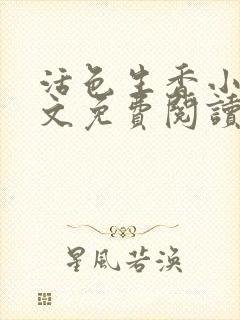 活色生香小
文免費閱讀
星風若渙